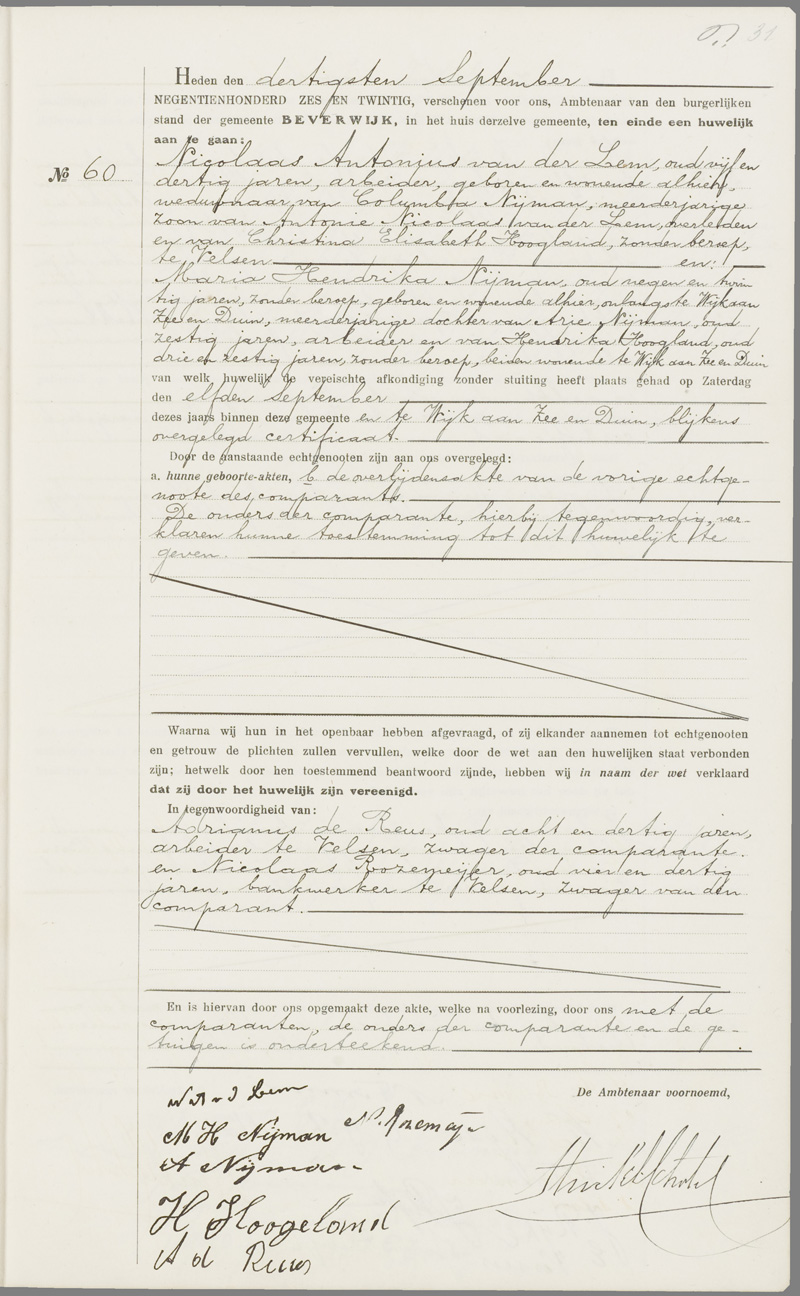 31
Heden den dertigsten September
NEGENTIENHONDERD ZES EN TWINTIG, verschenen voor ons, Ambtenaar van den burgerlijken
stand der gemeente BEVERWIJK, in het huis derzelve gemeente, ten einde een huwelijk
aan te gaan:
No 60
Nicolaas Antonius van der Lem, oud vijf en
dertig jaren, arbeider, geboren en wonende alhier,
weduwnaar van Columbta Nijman, meerderjarige
zoon van Antonie Nicolaas van der Lem, overleden
en van Christina Elisabeth Hoogland, zonder beroep,
te Velsen en:
Maria Hendrika Nijman, oud negen en twin
tig jaren, zonder beroep, geboren en wonende alhier, onlangs te Wijk aan
Zee en Duin, meerderjarige dochter van Arie Nijman, oud
zestig jaren, arbeider en van Hendrika Hoogland, oud
drie en zestig jaren, zonder beroep, beiden wonende te Wijk aan Zee en Duin
van welk huwelijk de vereischte afkondiging zonder stuiting heeft plaats gehad op Zaterdag
den elfden September
dezes jaars binnen deze gemeente en te Wijk aan Zee en Duin, blijkens
overgelegd certificaat.
Door de aanstaande echtgenooten zijn aan ons overgelegd:
a. hunne geboorte-akten, b de overlijdensakte van de vorige echtge-
noote des comparants.
De ouders der comparante, hierbij tegenwoordig, ver-
klaren hunne toestemming tot dit huwelijk te
geven.
Waarna wij hun in het openbaar hebben afgevraagd, of zij elkander aannemen tot echtgenooten
en getrouw de plichten zullen vervullen, welke door de wet aan den huwelijken staat verbonden
zijn; hetwelk door hen toestemmend beantwoord zijnde, hebben wij in naam der wet verklaard
dat zij door het huwelijk zijn vereenigd.
In tegenwoordigheid van:
Adrianus de Reus, oud acht en dertig jaren,
arbeider te Velsen, zwager der comparante.
en Nicolaas Rozemeijer, oud vier en dertig
jaren, bankwerker te Velsen, zwager van den
comparant.
En is hiervan door ons opgemaakt deze akte, welke na voorlezing, door ons met de
comparanten, de ouders der comparante en de ge-
tuigen is onderteekend.
De Ambtenaar voornoemd,
v d Lem
M H Nijman N. Rozemeijer
A Nijman
H Hoogeland
A d Reus